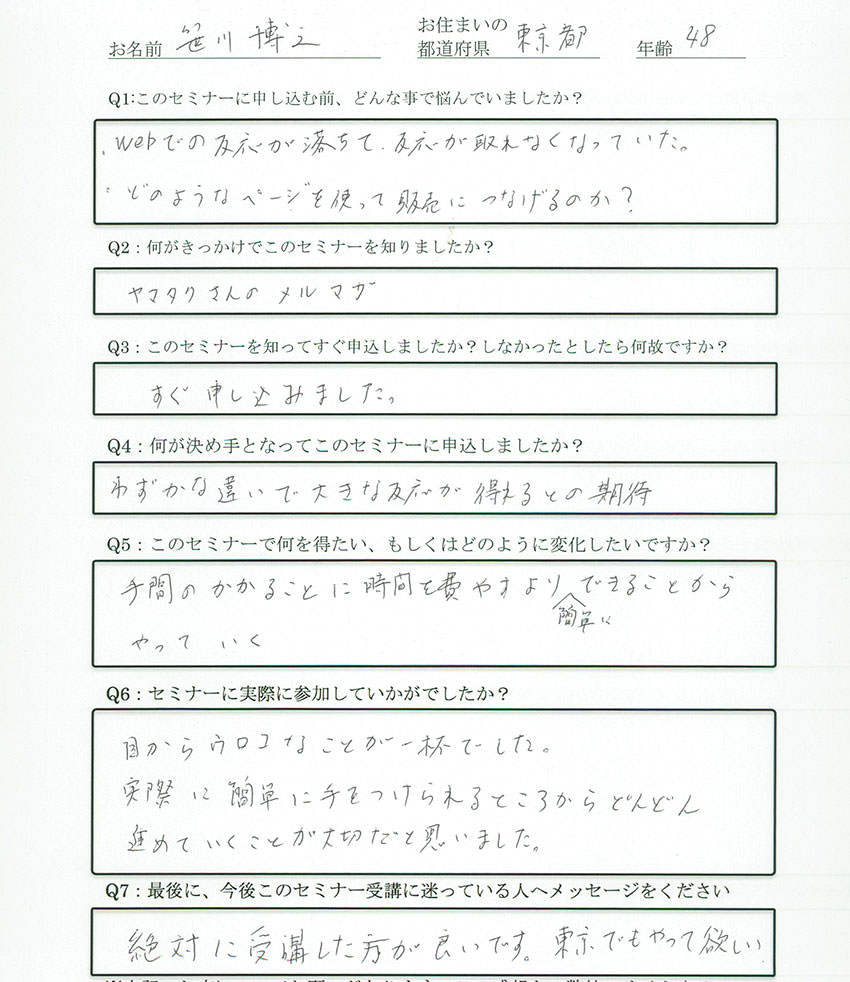 お名前 笹川 博之 お住まいの都道府県 東京都 年齢 48
Q1:このセミナーに申し込む前、どんな事で悩んでいましたか？
・webでの反応が落ちて、反応が取れなくなっていた。
・どのようなページを使って販売につなげるのか？
Q2：何がきっかけでこのセミナーを知りましたか？
ヤマタクさんのメルマガ
Q3：このセミナーを知ってすぐ申込しましたか？しなかったとしたら何故ですか？
すぐ申し込みました。
Q4：何が決め手となってこのセミナーに申込しましたか？
わずかな違いで大きな反応が得れるとの期待
Q5：このセミナーで何を得たい、もしくはどのように変化したいですか？
手間のかかることに時間を費やすより簡単にできることから
やっていく
Q6：セミナーに実際に参加していかがでしたか？
目からウロコなことが一杯でした。
実際に簡単に手をつけられるところからどんどん
進めていくことが大切だと思いました。
Q7：最後に、今後このセミナー受講に迷っている人へメッセージをください
絶対に受講した方が良いです。東京でもやって欲しい